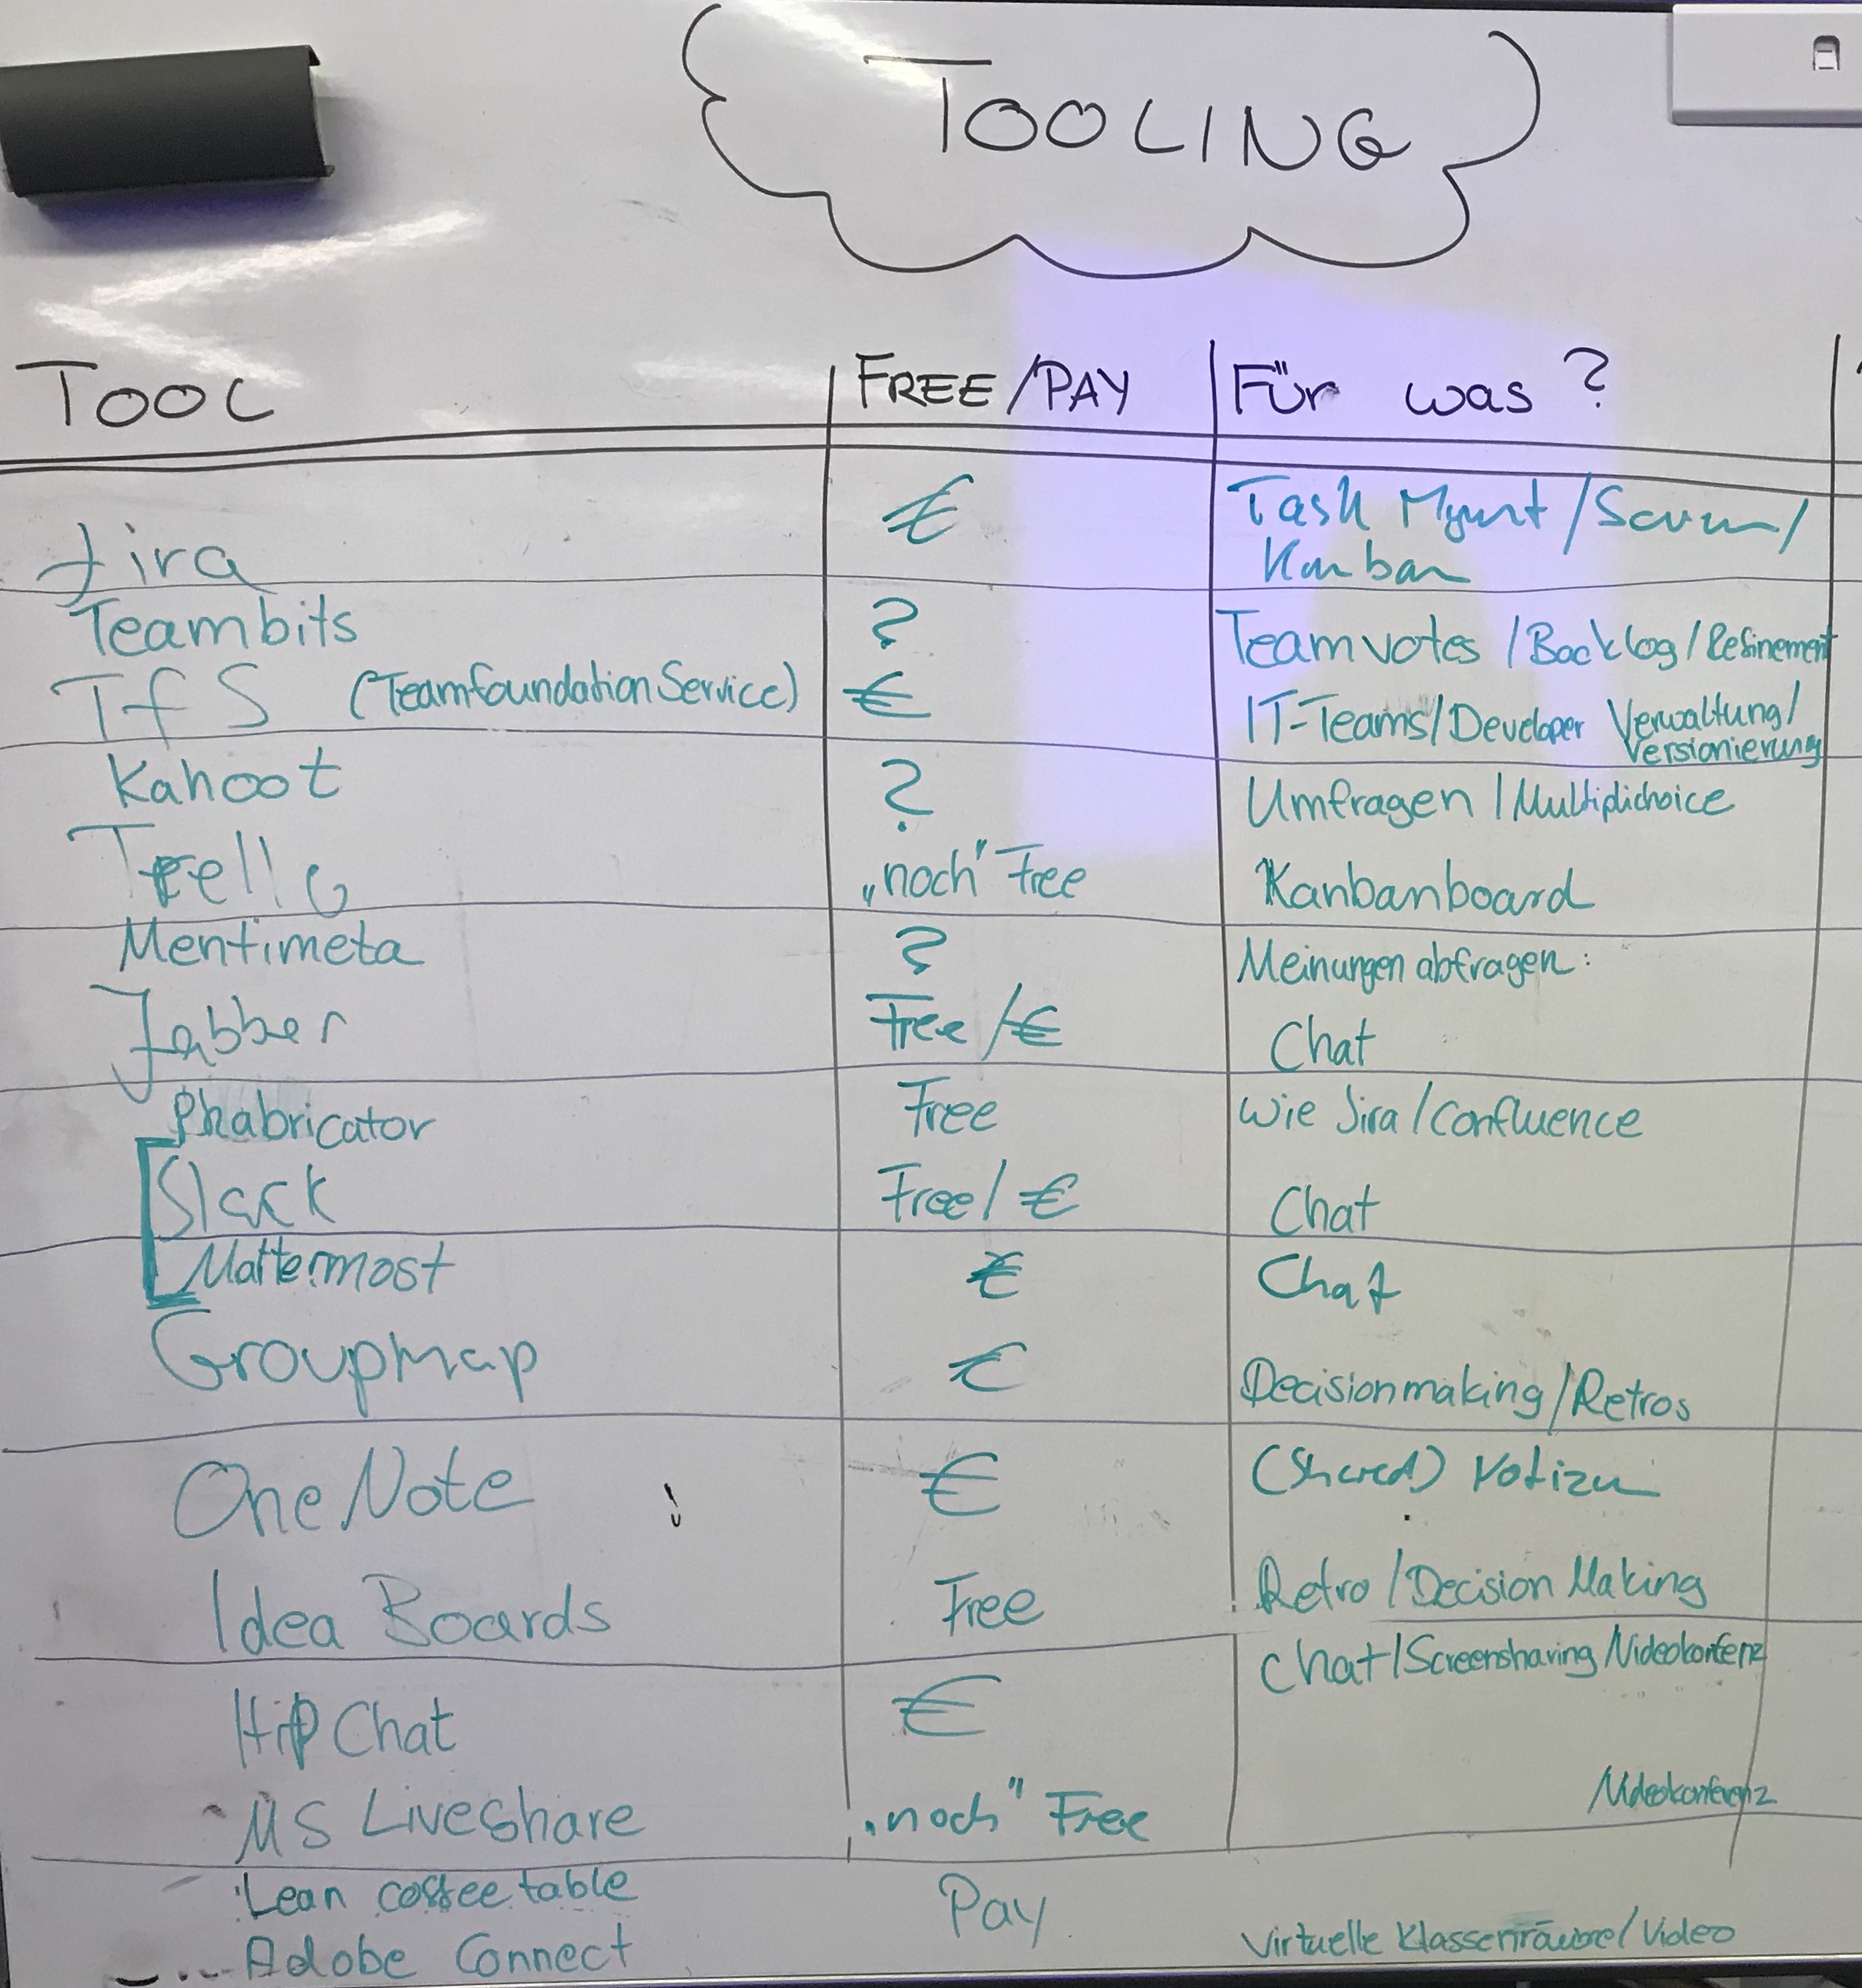 TOOLING
TOOL FREE/PAY Für was ?
Jira € Task Mgmt/Scrum/
Kanban
Teambits ? Teamvotes/Backlog/Refinement
TfS (TeamfoundationService) € IT-Teams/Developer Verwaltung/
Versionierung
Kahoot ? Umfragen/Multiplichoice
Trello „noch" Free Kanbanboard
Mentimeta ? Meinungen abfragen:
Jabber Free/€ Chat
Phabricator Free Wie Jira/Confluence
Slack Free/€ Chat
Mattermost € Chat
Groupmap € Decisionmaking/Retros
OneNote € (Shared) Notizen
Idea Boards Free Retro/Decision Making
HipChat € Chat/Screensharing/Videokonfenz
MS Liveshare „noch" Free Videokonferenz
Lean coffee table Pay
Adobe Connect Virtuelle Klassenräume/Video